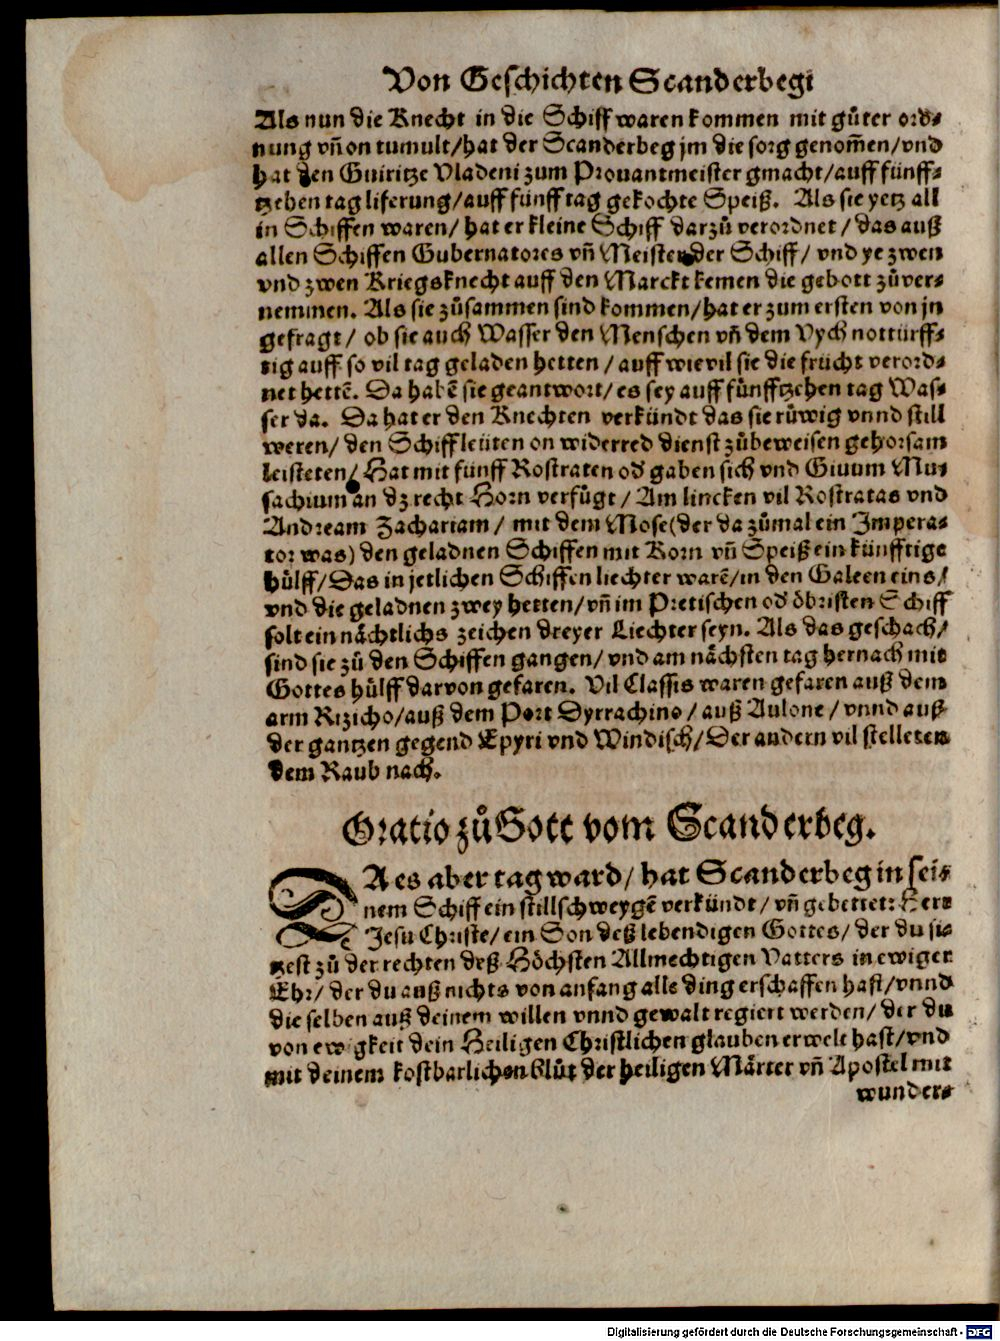 Von Geschichten Scanderbegi
Als nun die Knecht in die Schiff waren kommen mit gůter ord⸗
nung vñ on tumult/ hat der Scanderbeg jm die sorg genom̃en/ vnd
hat den Guiritze Vladeni zum Prouantmeister gmacht/ auff fünff⸗
tzehen tag liferung/ auff fünff tag gekochte Speiß. Als sie yetz all
in Schiffen waren/ hat er kleine Schiff darzů verordnet/ das auß
allen Schiffen Gubernatores vñ Meister der Schiff/ vnd ye zwen
vnd zwen Kriegsknecht auff den Marckt kemen die gebott zůver⸗
nemmen. Als sie zůsammen sind kommen/ hat er zum ersten von jn
gefragt/ ob sie auch Wasser den Menschen vñ dem Vych notturff⸗
tig auff so vil tag geladen hetten/ auff wievil sie die frücht verord⸗
net hettẽ. Da habẽ sie geantwort/ es sey auff fünfftzehen tag Was⸗
ser da. Da hat er den Knechten verkündt das sie růwig vnnd still
weren/ den Schiffleüten on widerred dienst zůbeweisen gehorsam
leisteten/ Hat mit fünff Rostraten od gaben sich vnd Giuum Mu⸗
sachium an dz recht Horn verfůgt/ Am lincken vil Rostratas vnd
Andream Zachariam/ mit dem Mose (der da zůmal ein Impera⸗
tor was) den geladnen Schiffen mit Korn vñ Speiß ein künfftige
hülff/ Das in jetlichen Schiffen liechter warẽ/ in den Galeen eins/
vnd die geladnen zwey hetten/ vñ im Pretischen od öbristen Schiff
solt ein nächtlichs zeichen dreyer Liechter seyn. Als das geschach/
sind sie zů den Schiffen gangen/ vnd am nächsten tag hernach mit
Gottes hülff darvon gefaren. Vil Classis waren gefaren auß dem
arm Rizicho/ auß dem Port Dyrrachino/ auß Aulone/ vnnd auß
der gantzen gegend Epyri vnd Windisch/ Der andern vil stelleten
dem Raub nach.
Oratio zů Gott vom Scanderbeg.
DA es aber tag ward/ hat Scanderbeg in sei⸗
nem Schiff ein stillschweygẽ verkündt/ vñ gebettet: Herr
Jesu Christe/ ein Son deß lebendigen Gottes/ der du si⸗
tzest zů der rechten deß Höchsten Allmechtigen Vatters in ewiger
Ehr/ der du auß nichts von anfang alle ding erschaffen hast/ vnnd
die selben auß deinem willen vnnd gewalt regiert werden/ der du
von ewigkeit dein Heiligen Christlichen glauben erwelt hast/ vnd
mit deinem kostbarlichen Blůt der heiligen Märter vñ Apostel mit
wunder⸗
Digitalisierung gefördert durch die Deutsche Forschungsgemeinschaft - DFG